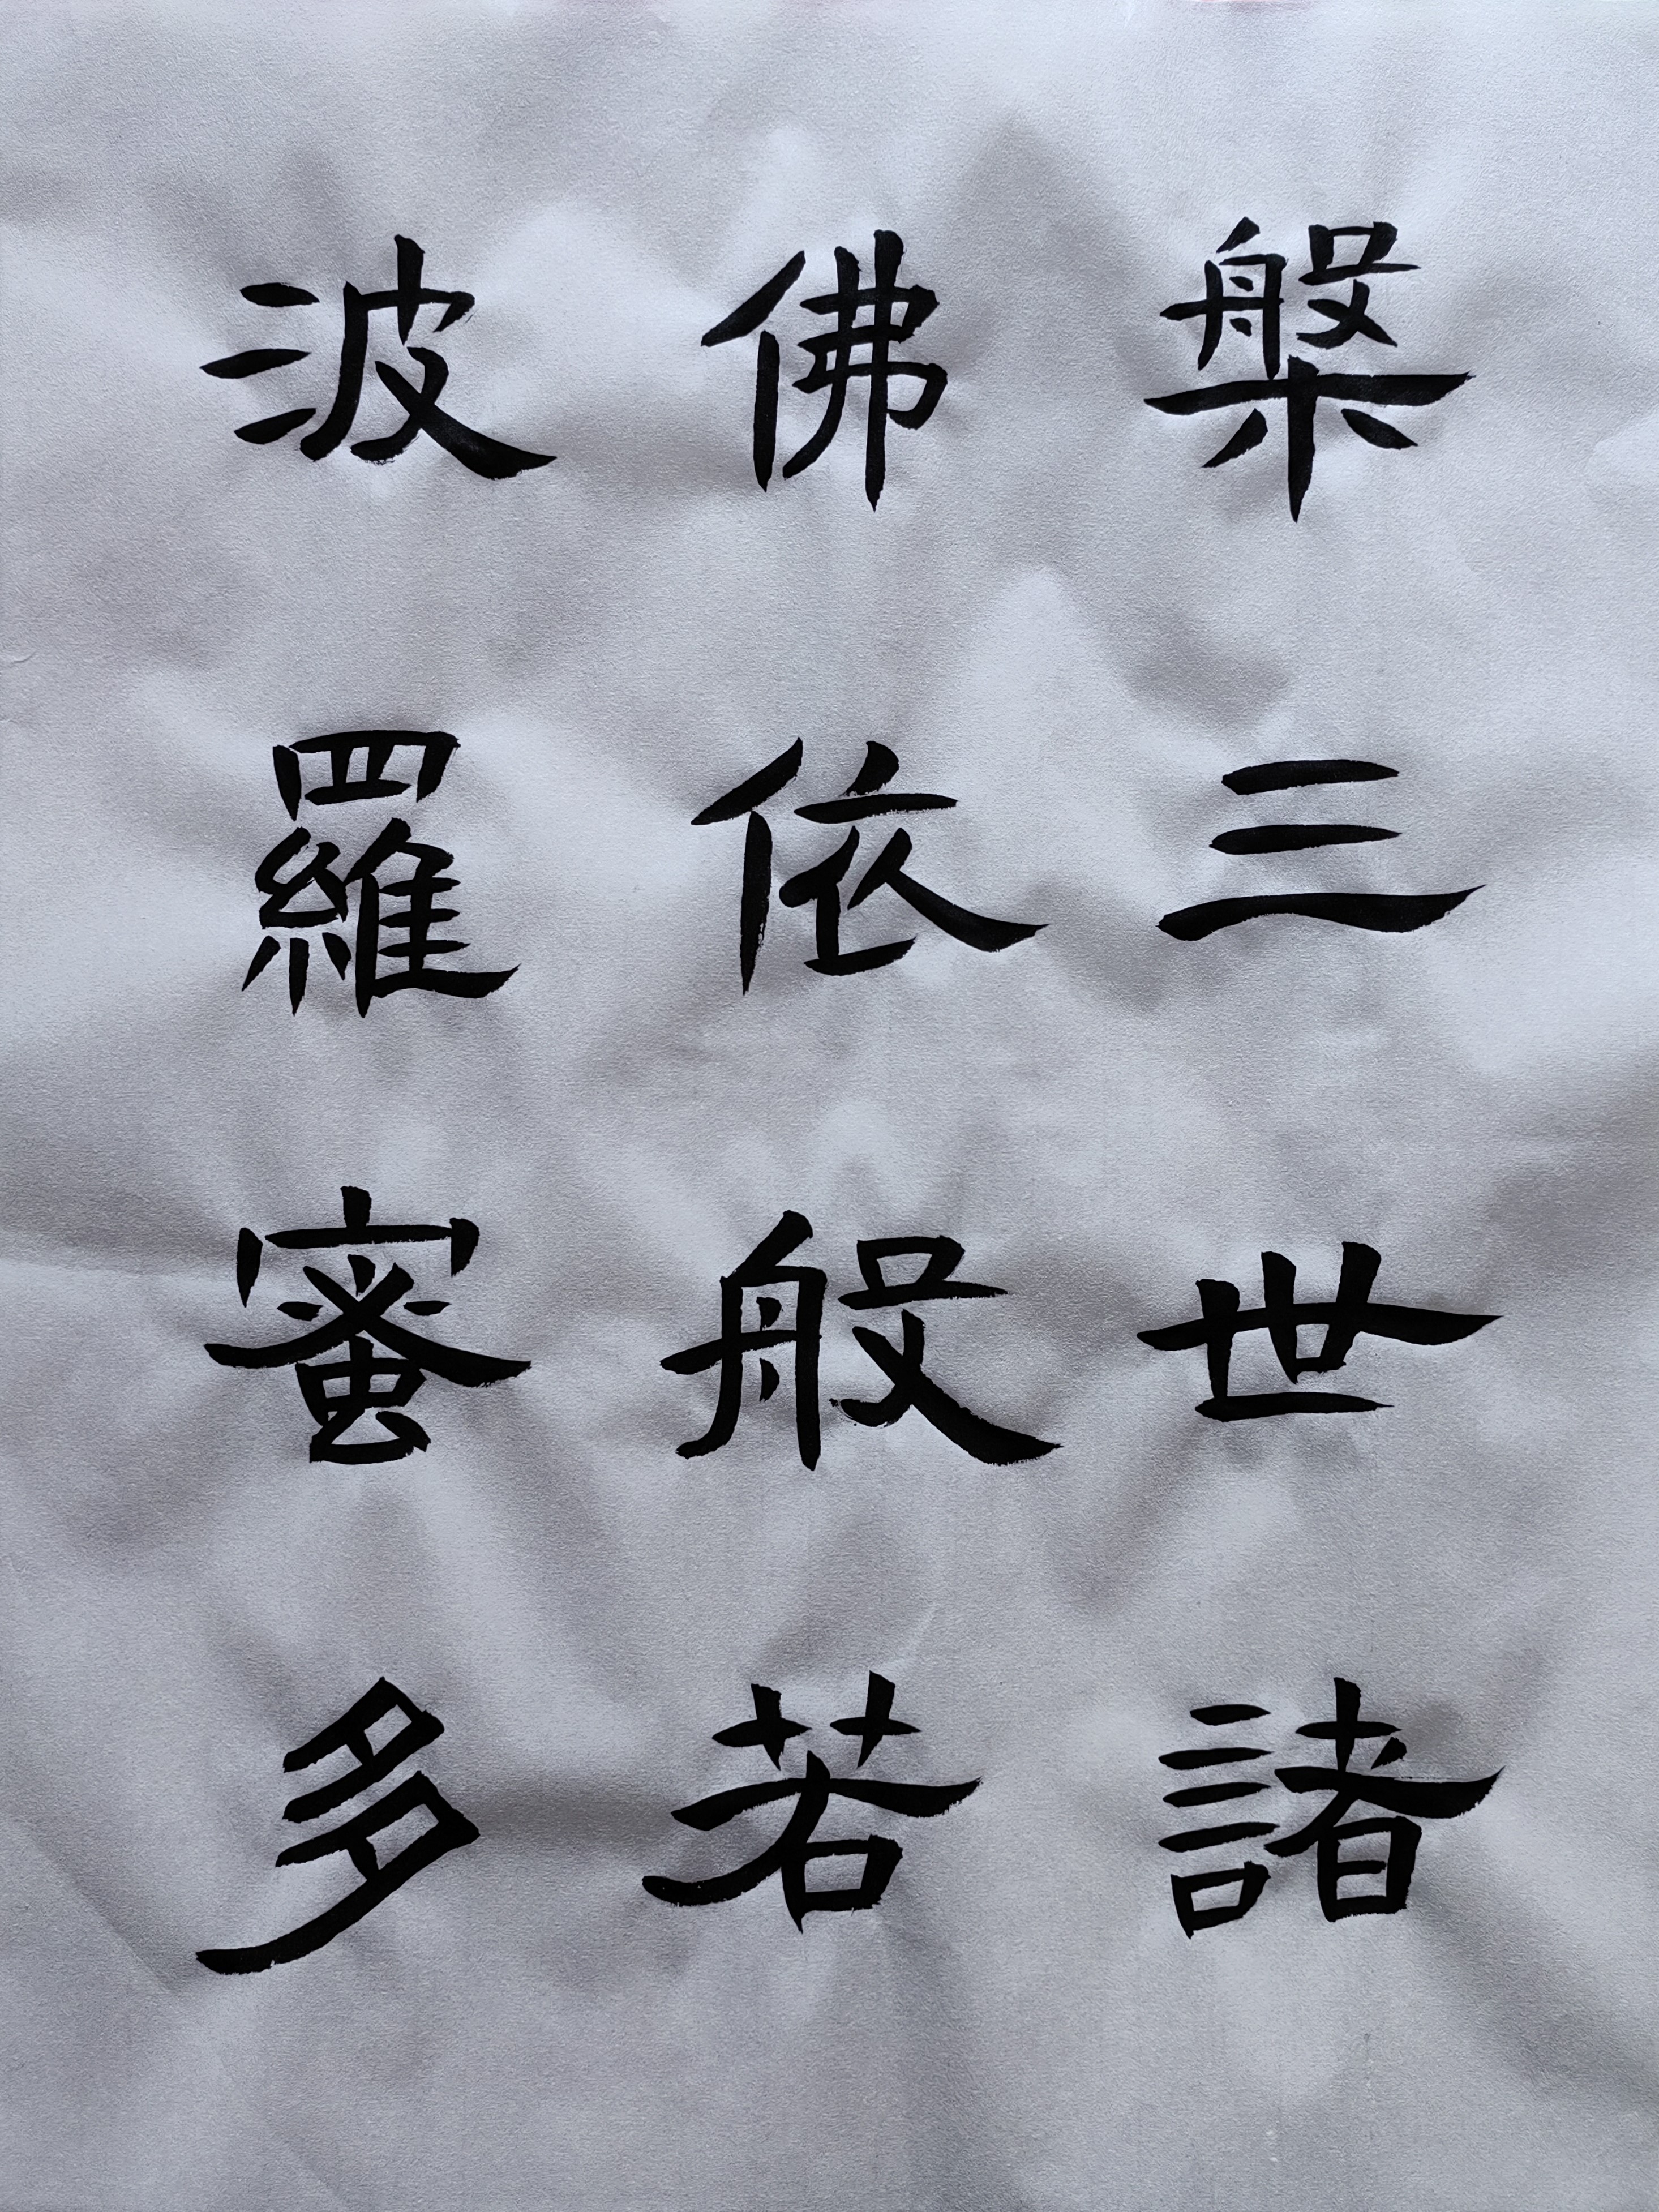 槃三世諸
佛依般若
波羅蜜多